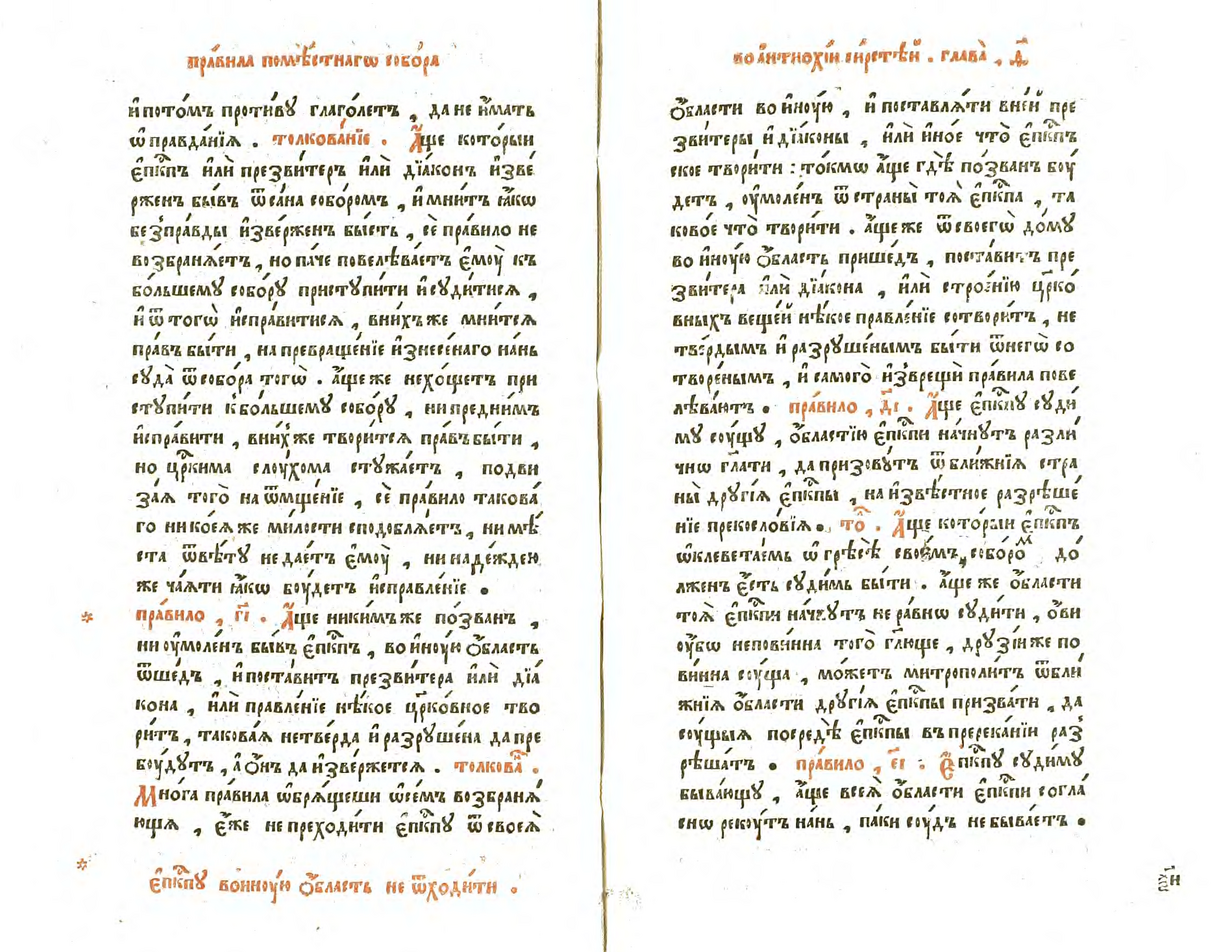 пра́вила помѣ́стнагѡ собо́ра
и҆ пото́мъ проти́вꙋ глаго́летъ , да не и҆́мать
ѡ҆правда́нїѧ . толкова́нїе . А҆́ще кото́рыи
є҆пⷭ҇кпъ и҆лѝ презви́теръ и҆лѝ дїа́конъ и҆зве́
рженъ бы́въ ѿ са́на собо́ромъ , и҆ мни́тъ ꙗ҆́кѡ
без̾ пра́вды и҆зве́рженъ бы́сть , сѐ пра́вило не
возбранѧ́етъ , но па́че повелѣва́етъ є҆моу̀ къ
бо́льшемꙋ собо́рꙋ пристꙋпи́ти и҆ сꙋди́тисѧ ,
и҆ ѿ тогѡ̀ и҆спра́витисѧ , в ни́хъ же мни́тсѧ
пра́въ бы́ти , на превраще́нїе и҆знесе́наго на́нь
сꙋда̀ ѿ собо́ра тогѡ̀ . а҆́ще же не хо́щетъ при
стꙋпи́ти к̾ бо́льшемꙋ собо́рꙋ , ни пре́дним̾
и҆спра́вити , в ни́х̾ же твори́тсѧ пра́въ бы́ти ,
но цр҃кима слоу́хома стꙋжа́етъ , подви
за́ѧ того̀ на ѿмще́нїе , сѐ пра́вило такова́
го ни коеѧ́ же ми́лости сподоблѧ́етъ , ни мѣ́
ста ѿвѣ́тꙋ не дае́тъ є҆моу̀ , ни наде́ждею
же ча́ѧти ꙗ҆́кѡ боу́детъ и҆справле́нїе .
* пра́вило , г҃і . А҆́ще ники́мъ же по́званъ ,
ни оу҆моле́нъ бы́въ є҆пⷭ҇кпъ , во и҆ноу́ю ѻ҆́бласть
ѿше́дъ , и҆ поста́витъ презви́тера и҆лѝ дїа́
кона , и҆лѝ правле́нїе нѣ́кое цр҃ко́вное тво
ри́тъ , такова́ѧ нетве́рда и҆ разрꙋше́на да пре
боу́дꙋтъ , а҆ ѻ҆́нъ да и҆зве́ржетсѧ . толкова́ⷩ .
Мно́га пра́вила ѡ҆брѧ́щеши ѡ҆ се́мъ возбранѧ́
ющѧ , є҆́же не преходи́ти є҆пⷭ҇кпꙋ ѿ своеѧ̀
* є҆пⷭ҇кпꙋ во и҆ноу́ю ѻ҆́бласть не ѿходи́ти .
во а҆нтиохі́и си́рстѣй . глава̀ , д҃
ѻ҆́бласти во и҆ноу́ю , и҆ поставлѧ́ти в не́й пре
зви́теры и҆ дїа́коны , и҆лѝ и҆но́е что̀ є҆пⷭ҇кпъ
ское твори́ти : то́кмѡ а҆́ще гдѣ̀ по́званъ боу́
детъ , оу҆моле́нъ ѿ страны̀ тоѧ̀ є҆пⷭ҇кпа , та
ково́е что̀ твори́ти . а҆́ще же ѿ своегѡ̀ до́мꙋ
во и҆ноу́ю ѻ҆́бласть прише́дъ , поста́витъ пре
зви́тера и҆лѝ дїа́кона , и҆лѝ строе́нїю цр҃ко́
вныхъ веще́й нѣ́кое правле́нїе сотвори́тъ , не
тве́рдымъ и҆ разрꙋше́нымъ бы́ти ѿ негѡ̀ со
творе́нымъ , и҆ самого̀ и҆зврещѝ пра́вила пове
лѣва́ютъ . пра́вило , д҃і . А҆́ще є҆пⷭ҇кпꙋ сꙋди́
мꙋ соу́щꙋ , ѻ҆́бластїю є҆пⷭ҇кпи начнꙋ́тъ разли́
чнѡ гл҃ати , да призовꙋ́тъ ѿ бли́жнїѧ стра
ны̀ дрꙋгі́ѧ є҆пⷭ҇кпы , на и҆звѣ́стное разрѣше́
нїе прекосло́вїѧ . то́ⷧ . А҆́ще кото́рыи є҆пⷭ҇кпъ
ѡ҆клевета́емъ ѡ҆ грѣсѣ̀ свое́мъ , собо́роⷨ до́
лженъ є҆́сть сꙋди́мъ бы́ти . а҆́ще же ѻ҆́бласти
тоѧ̀ є҆пⷭ҇кпи начнꙋ́тъ не ра́внѡ сꙋди́ти , ѻ҆́ви
оу҆́бѡ непови́нна того̀ гл҃юще , дрꙋзі́и же по
ви́нна соу́ща , мо́жетъ митрополи́тъ ѿ бли́
жнїѧ ѻ҆́бласти дрꙋгі́ѧ є҆пⷭ҇кпы призва́ти , да
соу́щыѧ посредѣ̀ є҆пⷭ҇кпы в пререка́нїи раз̾
рѣша́тъ . пра́вило , є҃і . Є҆пⷭ҇кпꙋ сꙋди́мꙋ
быва́ющꙋ , а҆́ще всеѧ̀ ѻ҆́бласти є҆пⷭ҇кпи согла́
снѡ рекоу́тъ на́нь , па́ки соу́дъ не быва́етъ .